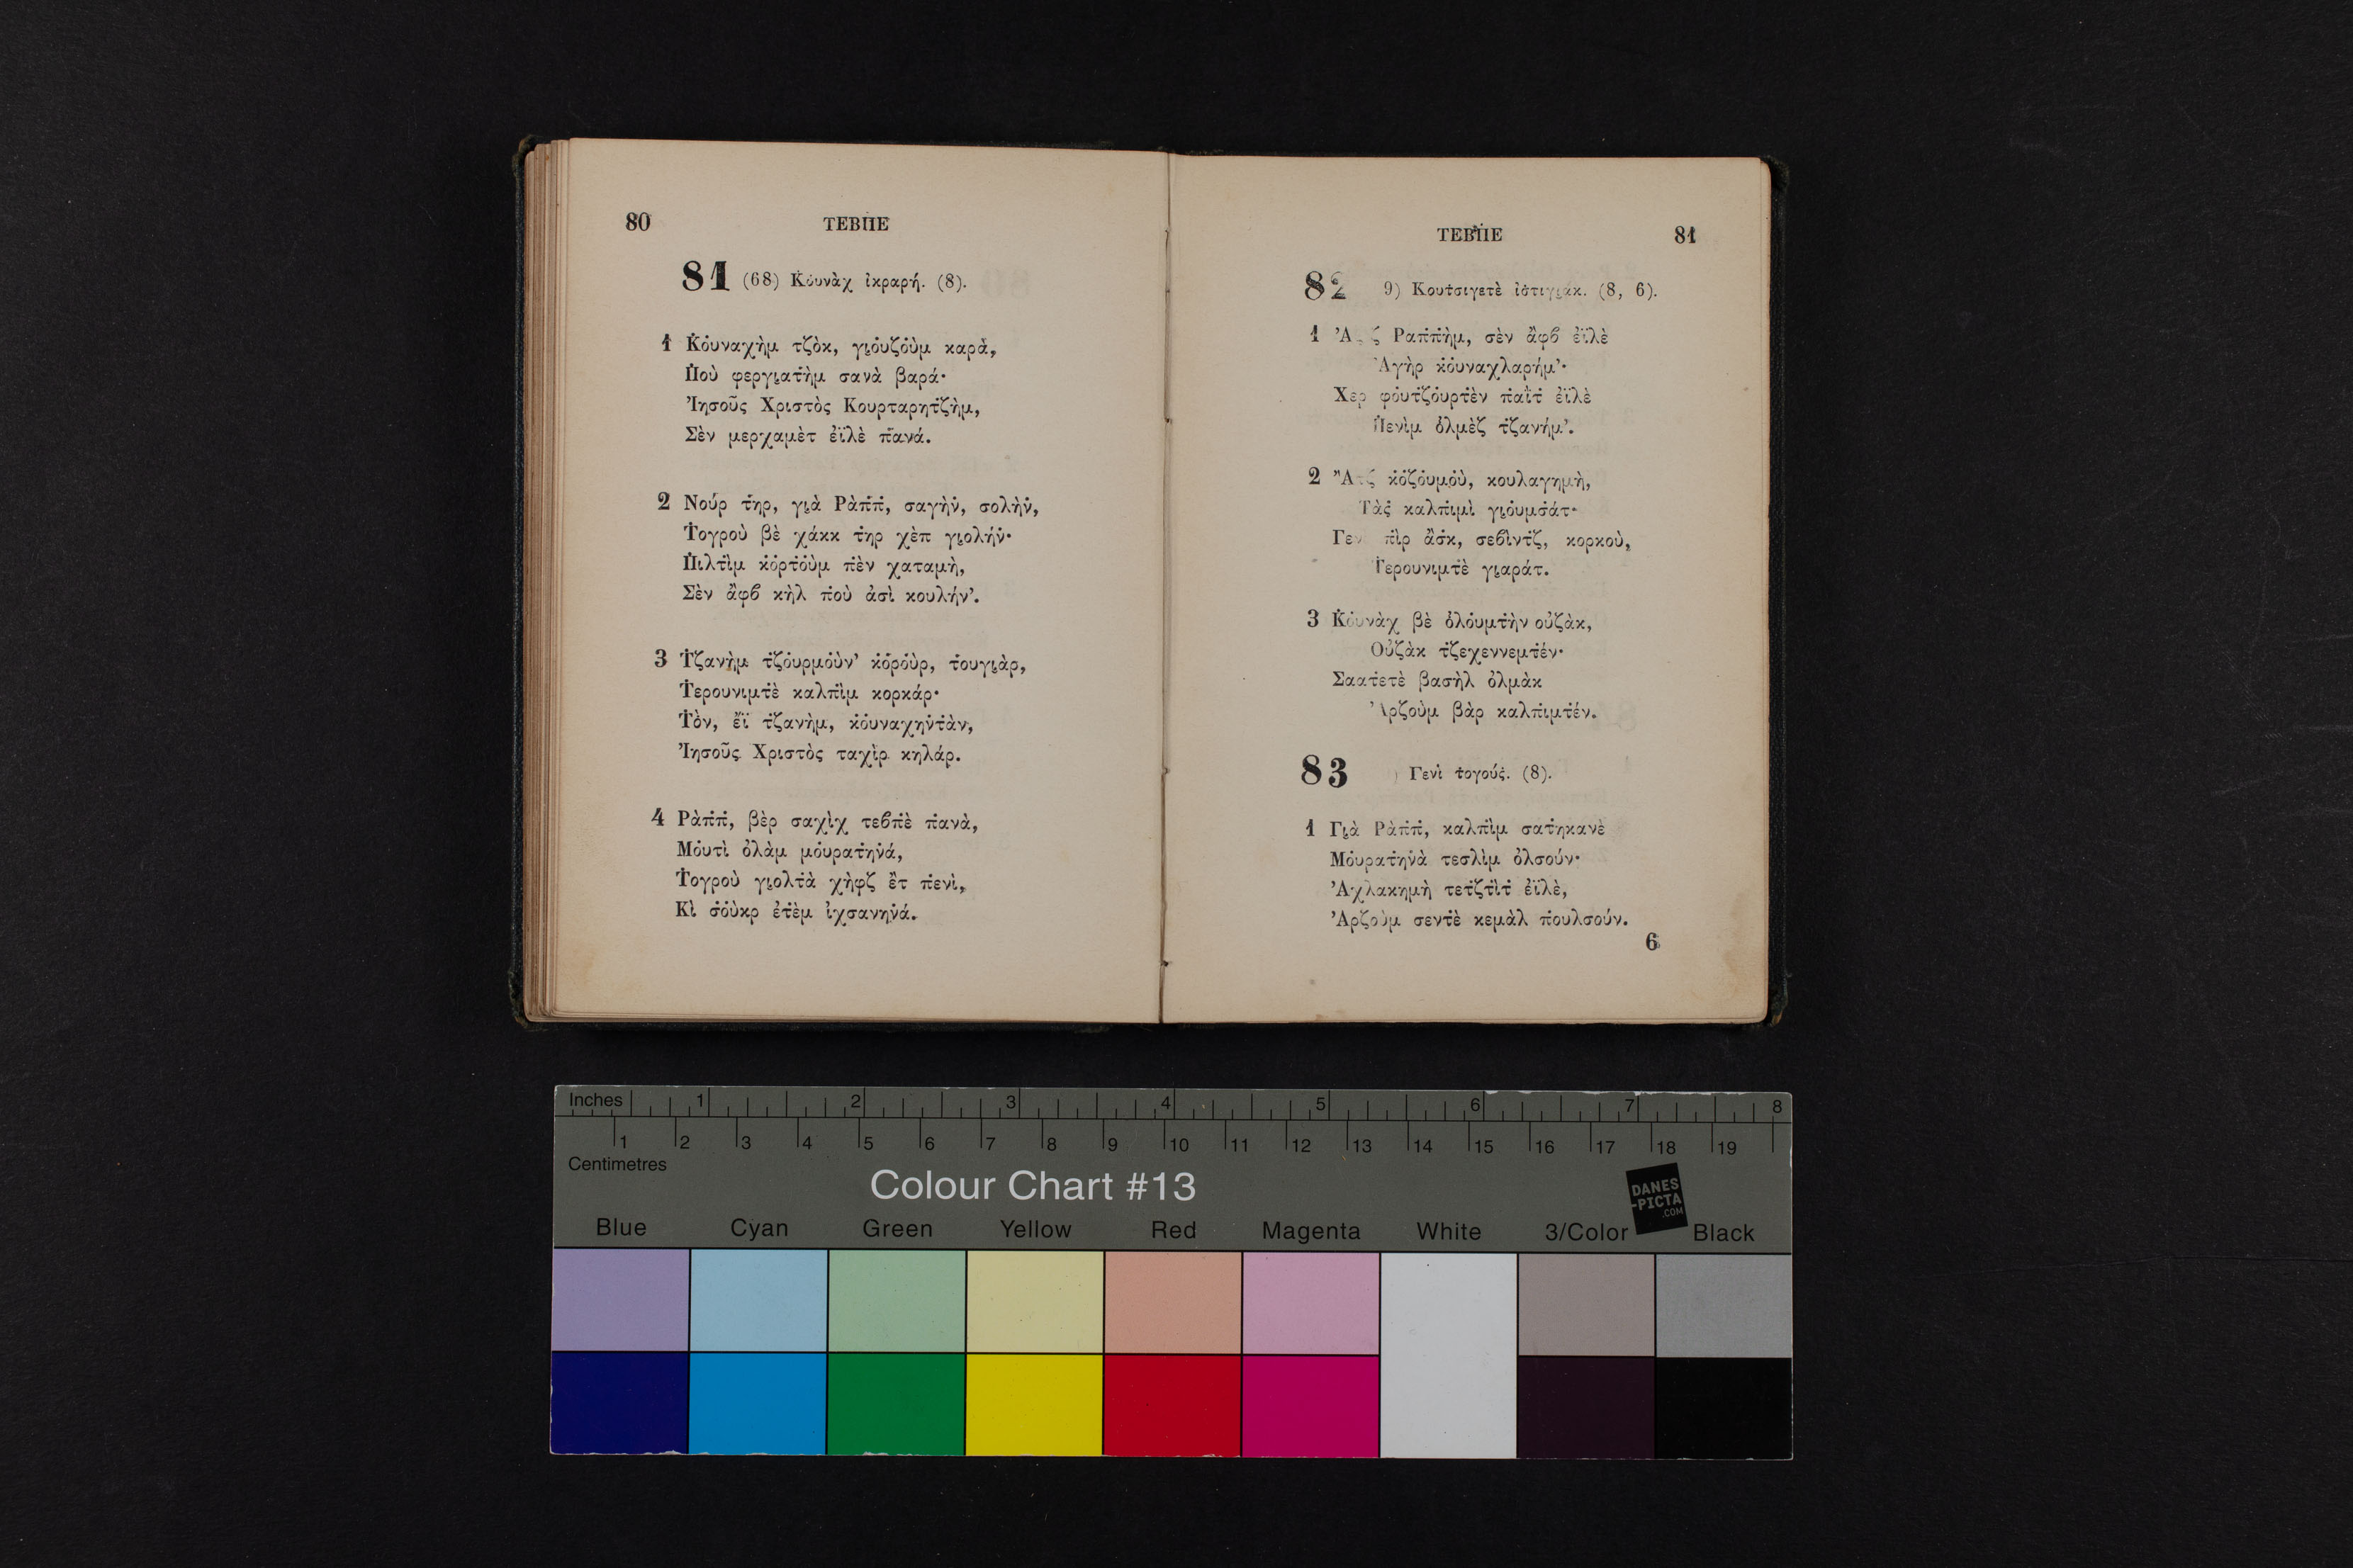 80
ΤΕΒΠ̇Ε
81 (68) Κ̇ι̇ουνὰχ ἰκραρή. (8).
1 Κ̇ο̇υναχὴμ τζ̇ὸκ, γιο̇υζο̇ὺμ καρὰ,
Π̇οὺ φεργιατ̇ὴμ σανὰ βαρά·
Ἰησοῦς Χριστὸς Κουρταρητζ̇ὴμ,
Σὲν μερχαμὲτ ἐϊλὲ π̇ανά.
2 Νούρ τ̇ηρ, γιὰ Ρὰπ̇π̇, σαγὴν̇, σολὴν̇,
Τ̇ογροὺ βὲ χάκκ τ̇ηρ χὲπ γιολήν̇·
Π̇ιλτ̇ὶμ κ̇ο̇ρτ̇ο̇ὺμ π̇ὲν χαταμὴ,
Σὲν ἂφϐ κὴλ π̇οὺ ἀσὶ κουλήν̓.
3 Τ̇ζανὴμ τζ̇ο̇υρμο̇ὺν̓ κ̇ο̇ρο̇ὺρ, τ̇ουγιὰρ,
Τ̇ερουνιμτ̇ὲ καλπ̇ὶμ κορκάρ·
Τ̇ὸν, ἒϊ τ̇ζανὴμ, κ̇ο̇υναχην̇τ̇ὰν,
Ἰησοῦς Χριστὸς ταχὶρ κηλάρ.
4 Ρὰπ̇π̇, βὲρ σαχὶχ τεϐπ̇ὲ π̇ανὰ,
Μο̇υτὶ ὀλὰμ μο̇υρατ̇ην̇ά,
Τ̇ογροὺ γιολτ̇ὰ χὴφζ ἒτ π̇ενὶ,
Κὶ σ̇ο̇ὺκρ ἐτ̇ὲμ ἰχσανην̇ά.
ΤΕΒΠ̇Ε
81
82 9) Κουτ̇σιγετὲ ἰσ̇τιγιάκ. (8, 6).
1 Ραπ̇π̇ὴμ, σὲν ἂφϐ ἐϊλὲ
Ἀγὴρ κ̇ο̇υναχλαρήμ̓·
Χερ φο̇υτ̇ζο̇υρτ̇ὲν π̇αῒτ̇ ἐϊλὲ
Π̇ενὶμ ὀ̇λμὲζ τ̇ζανήμ̓.
2 κ̇ο̇ζο̇υμο̇ὺ, κουλαγημὴ,
Τὰς̇ καλπ̇ιμὶ γιο̇υμσ̇άτ·
π̇ὶρ ἂσ̇κ, σεϐὶντ̇ζ, κορκοὺ,
Τ̇ερουνιμτ̇ὲ γιαράτ.
3 Κ̇ο̇υνὰχ βὲ ὀ̇λο̇υμτ̇ὴν οὐζὰκ,
Οὐζὰκ τ̇ζεχεννεμτ̇έν·
Σαατ̇ετὲ βασὴλ ὀλμὰκ
Ἀρζοὺμ βὰρ καλπ̇ιμτ̇έν.
83 ) Γενὶ τ̇ογούς̇. (8).
1 Γιὰ Ρὰπ̇π̇, καλπ̇ὶμ σατ̇ηκανὲ
Μο̇υρατ̇ην̇ὰ τεσλὶμ ὀλσούν·
Ἀχλακημὴ τετ̇ζτ̇ὶτ̇ ἐϊλὲ,
Ἀρζοὺμ σεντ̇ὲ κεμὰλ π̇ουλσούν.
6
Inches 1 2 3 4 5 6 7 8
1 2 3 4 5 6 7 8 9 10 11 12 13 14 15 16 17 18 19
Centimetres
Colour Chart #13
DANES
-PICTA
.COM
Blue Cyan Green Yellow Red Magenta White 3/Color Black